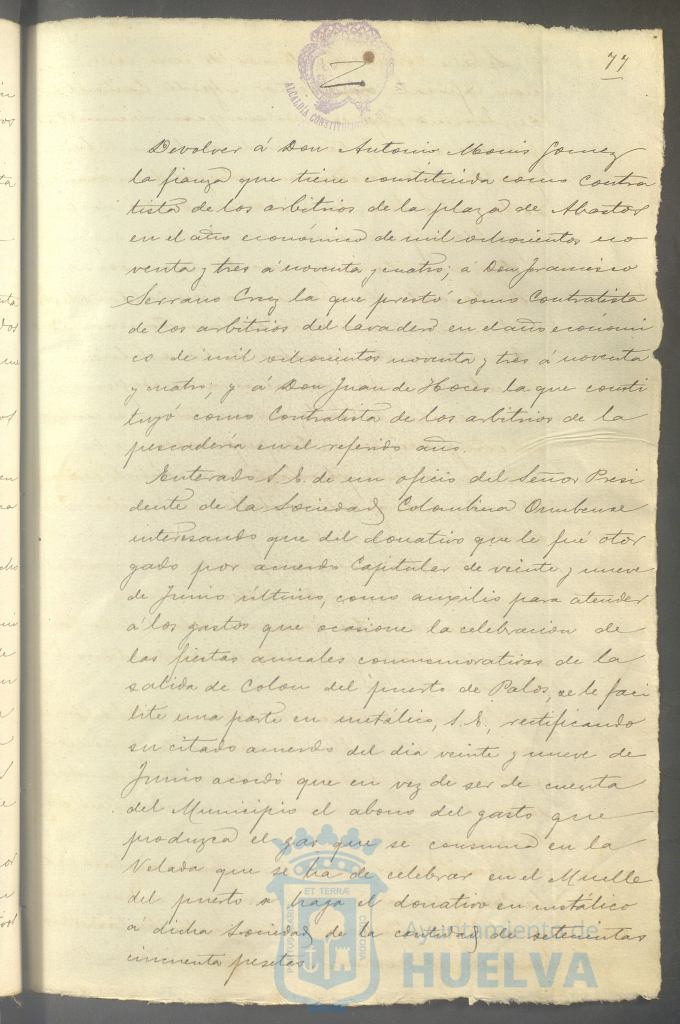 77
ALCALDÍA CONSTITUCIONAL
Devolver á Don Antonio Gomez
la fianza que tiene constituida como Contra
tista de los arbitrios de la plaza de Abastos
en el año económico de mil ochocientos no
venta y tres á noventa y cuatro; á Don Francisco
Serrano la que prestó como Contratista
de los arbitrios del lavadero en el año económi
co de mil ochocientos noventa y tres á noventa
y cuatro; y á Don Juan de Hoces la que consti
tuyó como Contratista de los arbitrios de la
pescadería en el referido año.
Enterado S. E. de un oficio del Señor Presi
dente de la Sociedad Colombina Onubense
interesando que del donativo que le fué otor
gado por acuerdo Capitular de veinte y nueve
de Junio último, como auxilio para atender
á los gastos que ocasione la celebracion de
las fiestas anuales conmemorativas de la
salida de Colon del puerto de Palos, se le faci
lite una parte en metálico, S. E., rectificando
su citado acuerdo del dia veinte y nueve de
Junio acordó que en vez de ser de cuenta
del Municipio el abono del gasto que
produzca el gas que se consuma en la
Velada que se ha de celebrar en el Muelle
del puerto se haga el donativo en metálico
á dicha Sociedad de la cantidad de setecientas
cincuenta pesetas.
ET TERRÆ
PORTUS MARIS
CUSTODIA
Ayuntamiento de
HUELVA